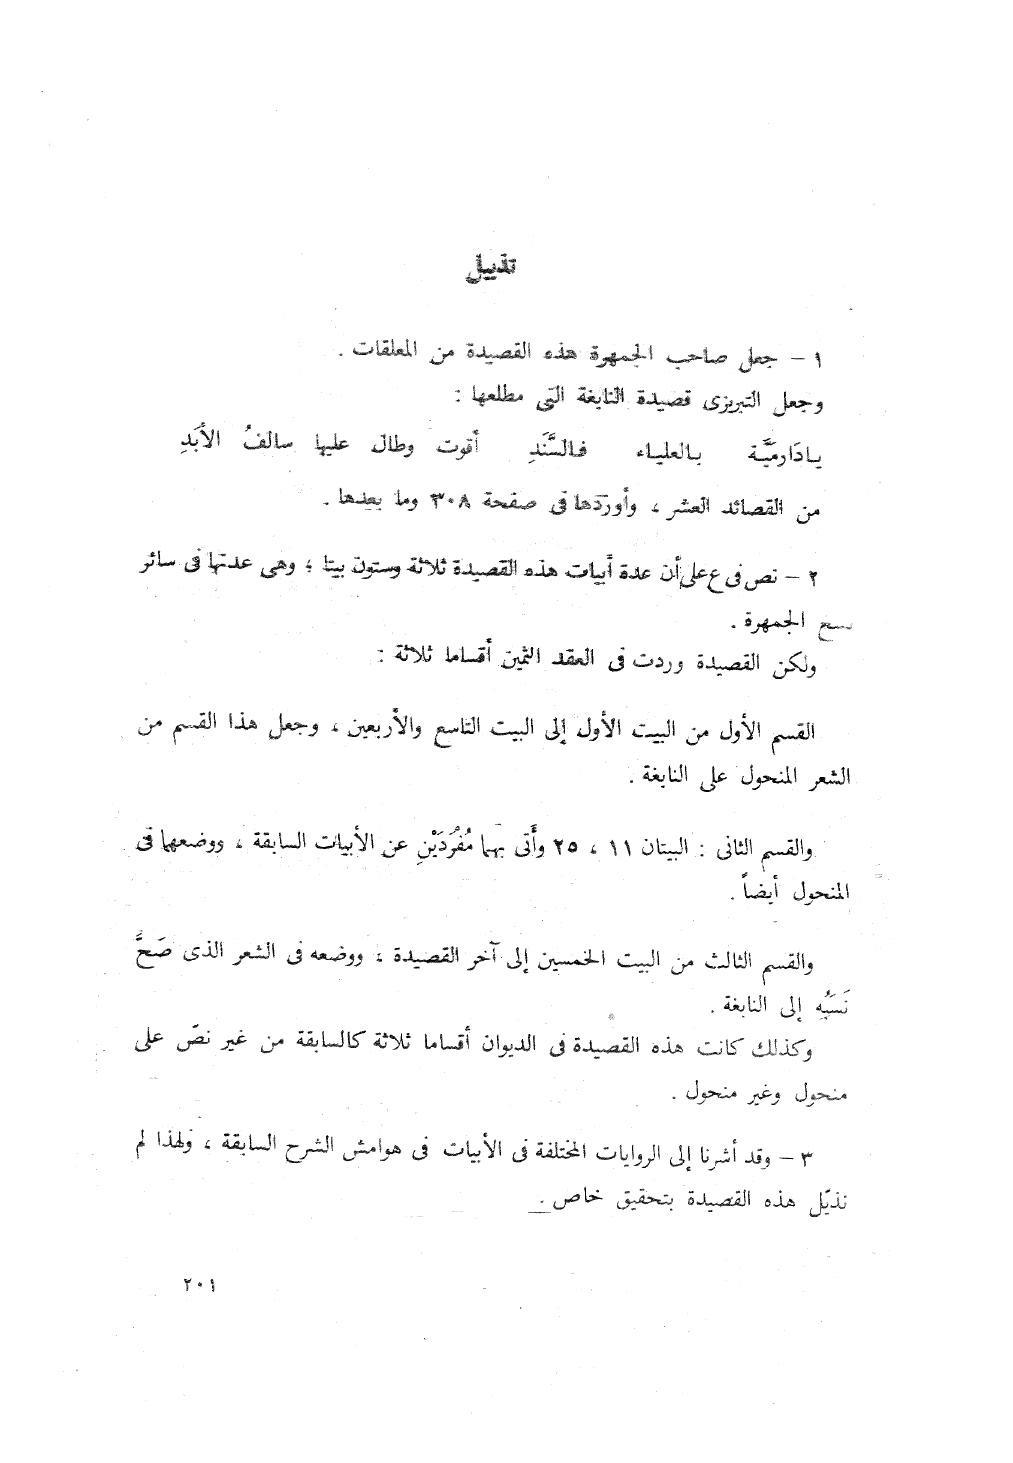 تذييل
١ – جعل صاحب الجمهرة هذه القصيدة من المعلقات .
وجعل التبريزى قصيدة النابغة التى مطلعها :
يادَارمَيَّة بالعلياء فالسَّنَدِ أقوت وطال عليها سالفُ الأبَدِ
من القصائد العشر ، وأوردها فى صفحة ٣٠٨ وما بعدها .
٢ – نص فى ع على أن عدة أبيات هذه القصيدة ثلاثة وستون بيتا ؛ وهى عدتها فى سائر
نسخ الجمهرة .
ولكن القصيدة وردت فى العقد الثمين أقساما ثلاثة :
القسم الأول من البيت الأول إلى البيت التاسع والأربعين ، وجعل هذا القسم من
الشعر المنحول على النابغة .
والقسم الثانى : البيتان ١١ ، ٢٥ وأَتى بهما مُفْرَدَيْنِ عن الأبيات السابقة ، ووضعهما فى
المنحول أيضاً .
والقسم الثالث من البيت الخمسين إلى آخر القصيدة ، ووضعه فى الشعر الذى صَحَّ
نَسَبُه إلى النابغة .
وكذلك كانت هذه القصيدة فى الديوان أقساما ثلاثة كالسابقة من غير نصّ على
منحول وغير منحول .
٣ – وقد أشرنا إلى الروايات المختلفة فى الأبيات فى هوامش الشرح السابقة ، ولهذا لم
نذيّل هذه القصيدة بتحقيق خاص .
٢٠١